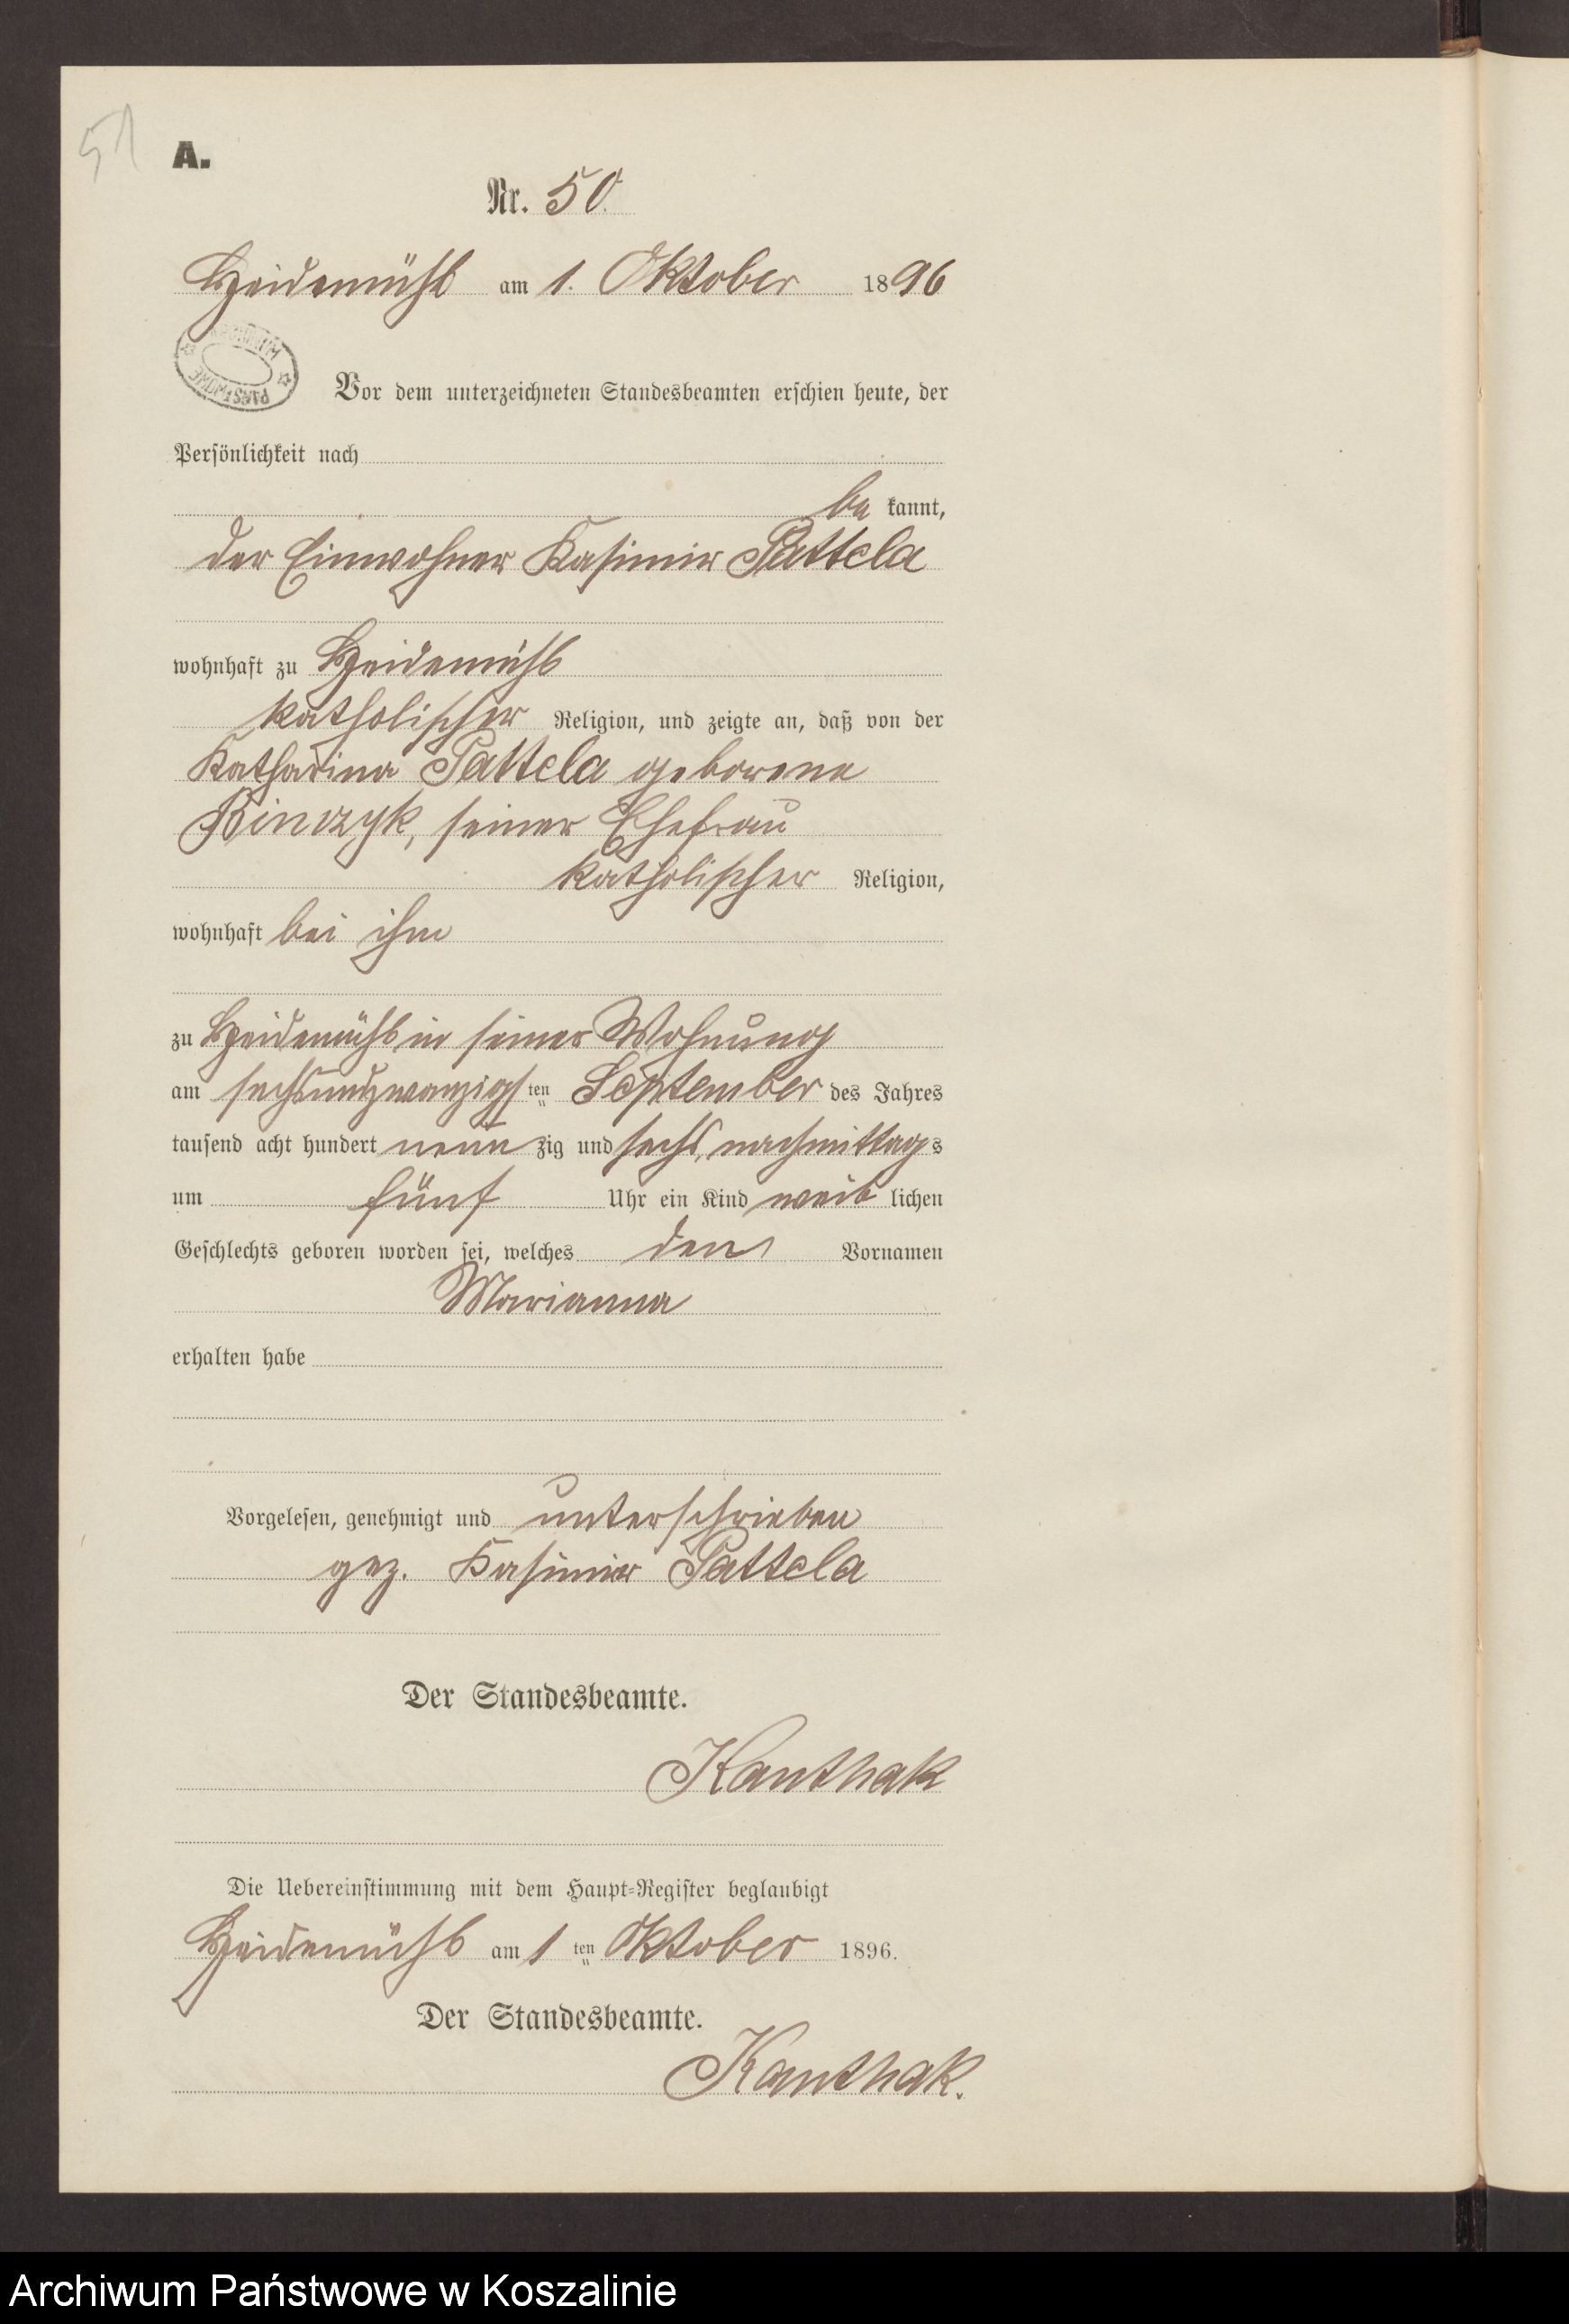 51
A.
Nr. 50.
Heidemühl am 1. Oktober 1896
ARCHIWUM PAŃSTWOWE
Vor dem unterzeichneten Standesbeamten erschien heute, der
Persönlichkeit nach
be kannt,
der Einwohner Kasimir Pattela
wohnhaft zu Heidemühl
katholischer Religion, und zeigte an, daß von der
Katharina Pattela geborene
Binczyk, seiner Ehefrau
katholischer Religion,
wohnhaft bei ihm
zu Heidemühl in seiner Wohnung
am sechsundzwanzigsten September des Jahres
tausend acht hundert neun zig und sechs, nachmittags
um fünf Uhr ein Kind weib lichen
Geschlechts geboren worden sei, welches den Vornamen
Marianna
erhalten habe
Vorgelesen, genehmigt und unterschrieben
gez. Kasimir Pattela
Der Standesbeamte.
Kanthak
Die Uebereinstimmung mit dem Haupt-Register beglaubigt
Heidemühl am 1ten Oktober 1896.
Der Standesbeamte.
Kanthak.
Archiwum Państwowe w Koszalinie